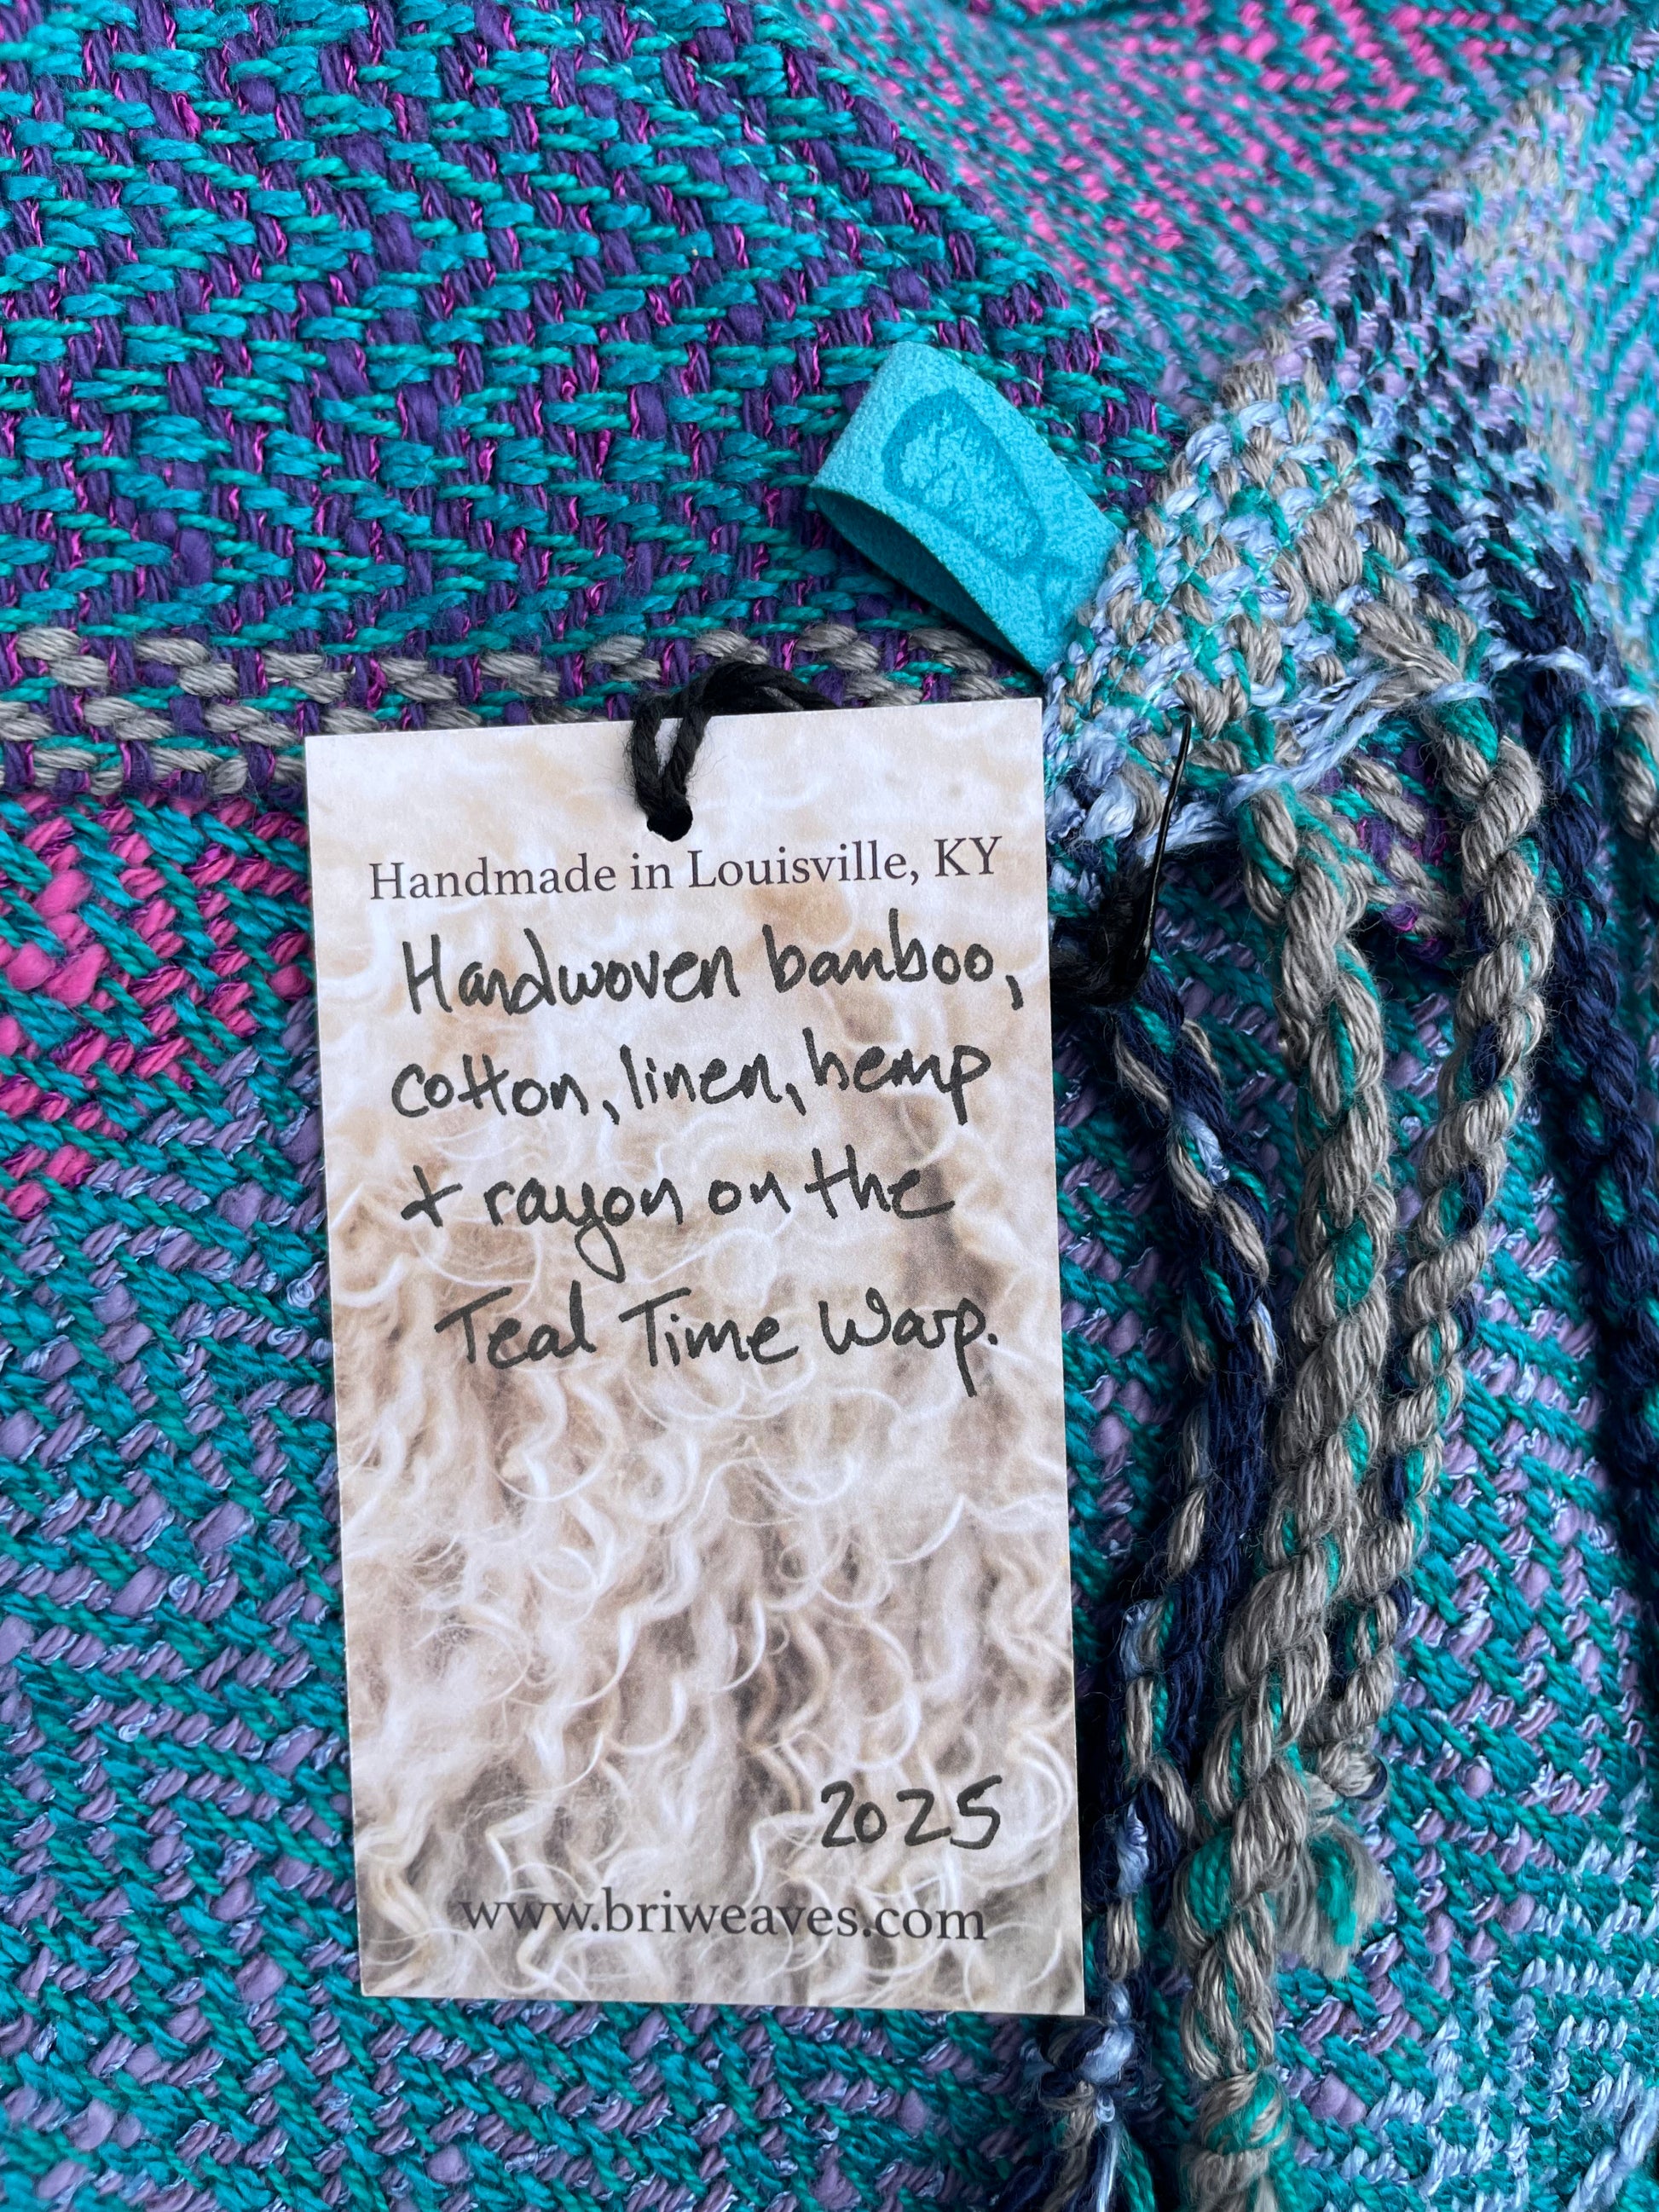 Handmade in Louisville, KY
Handwoven bamboo,
cotton, linen, hemp
+ rayon on the
Teal Time Warp.
2025
www.briweaves.com